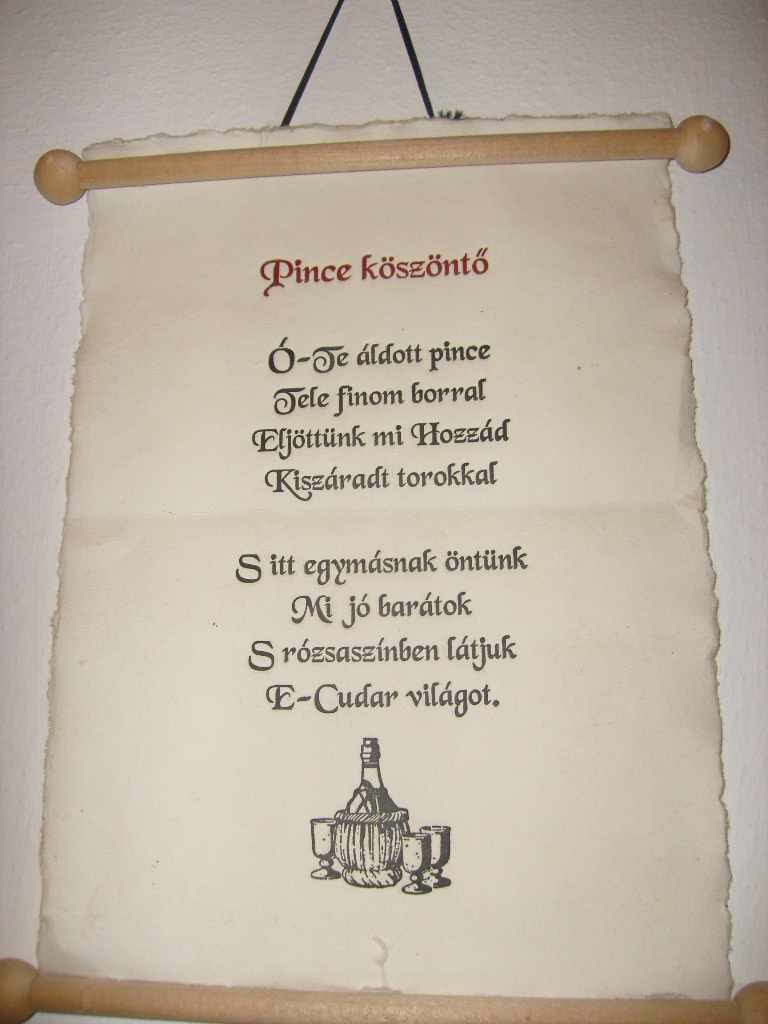 Pince köszöntő
Ó-Te áldott pince
Tele finom borral
Eljöttünk mi Hozzád
Kiszáradt torokkal
S itt egymásnak öntünk
Mi jó barátok
S rózsaszínben látjuk
E-Cudar világot.